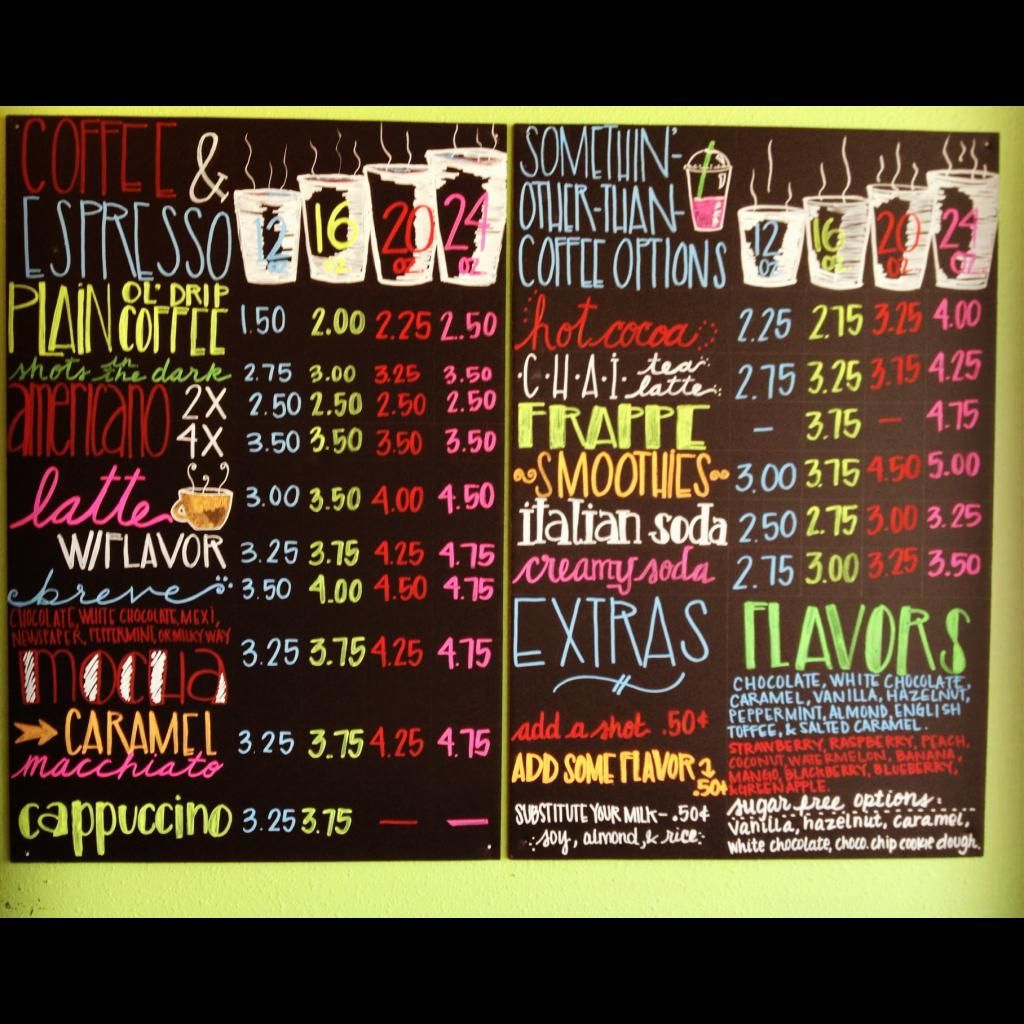 COFFEE &
ESPRESSO
12 OZ 16 OZ 20 OZ 24 OZ
PLAIN OL' DRIP COFFEE 1.50 2.00 2.25 2.50
shots in the dark 2.75 3.00 3.25 3.50
americano 2X 2.50 2.50 2.50 2.50
4X 3.50 3.50 3.50 3.50
latte 3.00 3.50 4.00 4.50
W/FLAVOR 3.25 3.75 4.25 4.75
breve 3.50 4.00 4.50 4.75
CHOCOLATE, WHITE CHOCOLATE, MEXI,
NEWSPAPER, PEPPERMINT, OR MILKY WAY
mocha 3.25 3.75 4.25 4.75
CARAMEL
macchiato 3.25 3.75 4.25 4.75
cappuccino 3.25 3.75 — —
SOMETHIN'-
OTHER-THAN-
COFFEE OPTIONS
12 OZ 16 OZ 20 OZ 24 OZ
hot cocoa 2.25 2.75 3.25 4.00
C·H·A·I· tea latte 2.75 3.25 3.75 4.25
FRAPPE — 3.75 — 4.75
SMOOTHIES 3.00 3.75 4.50 5.00
italian soda 2.50 2.75 3.00 3.25
creamy soda 2.75 3.00 3.25 3.50
EXTRAS
add a shot .50¢
ADD SOME FLAVOR .50¢
SUBSTITUTE YOUR MILK- .50¢
soy, almond, & rice
FLAVORS
CHOCOLATE, WHITE CHOCOLATE,
CARAMEL, VANILLA, HAZELNUT,
PEPPERMINT, ALMOND, ENGLISH
TOFFEE, & SALTED CARAMEL.
STRAWBERRY, RASPBERRY, PEACH,
COCONUT, WATERMELON, BANANA,
MANGO, BLACKBERRY, BLUEBERRY,
& GREEN APPLE.
sugar free options:
vanilla, hazelnut, caramel,
white chocolate, choco. chip cookie dough.